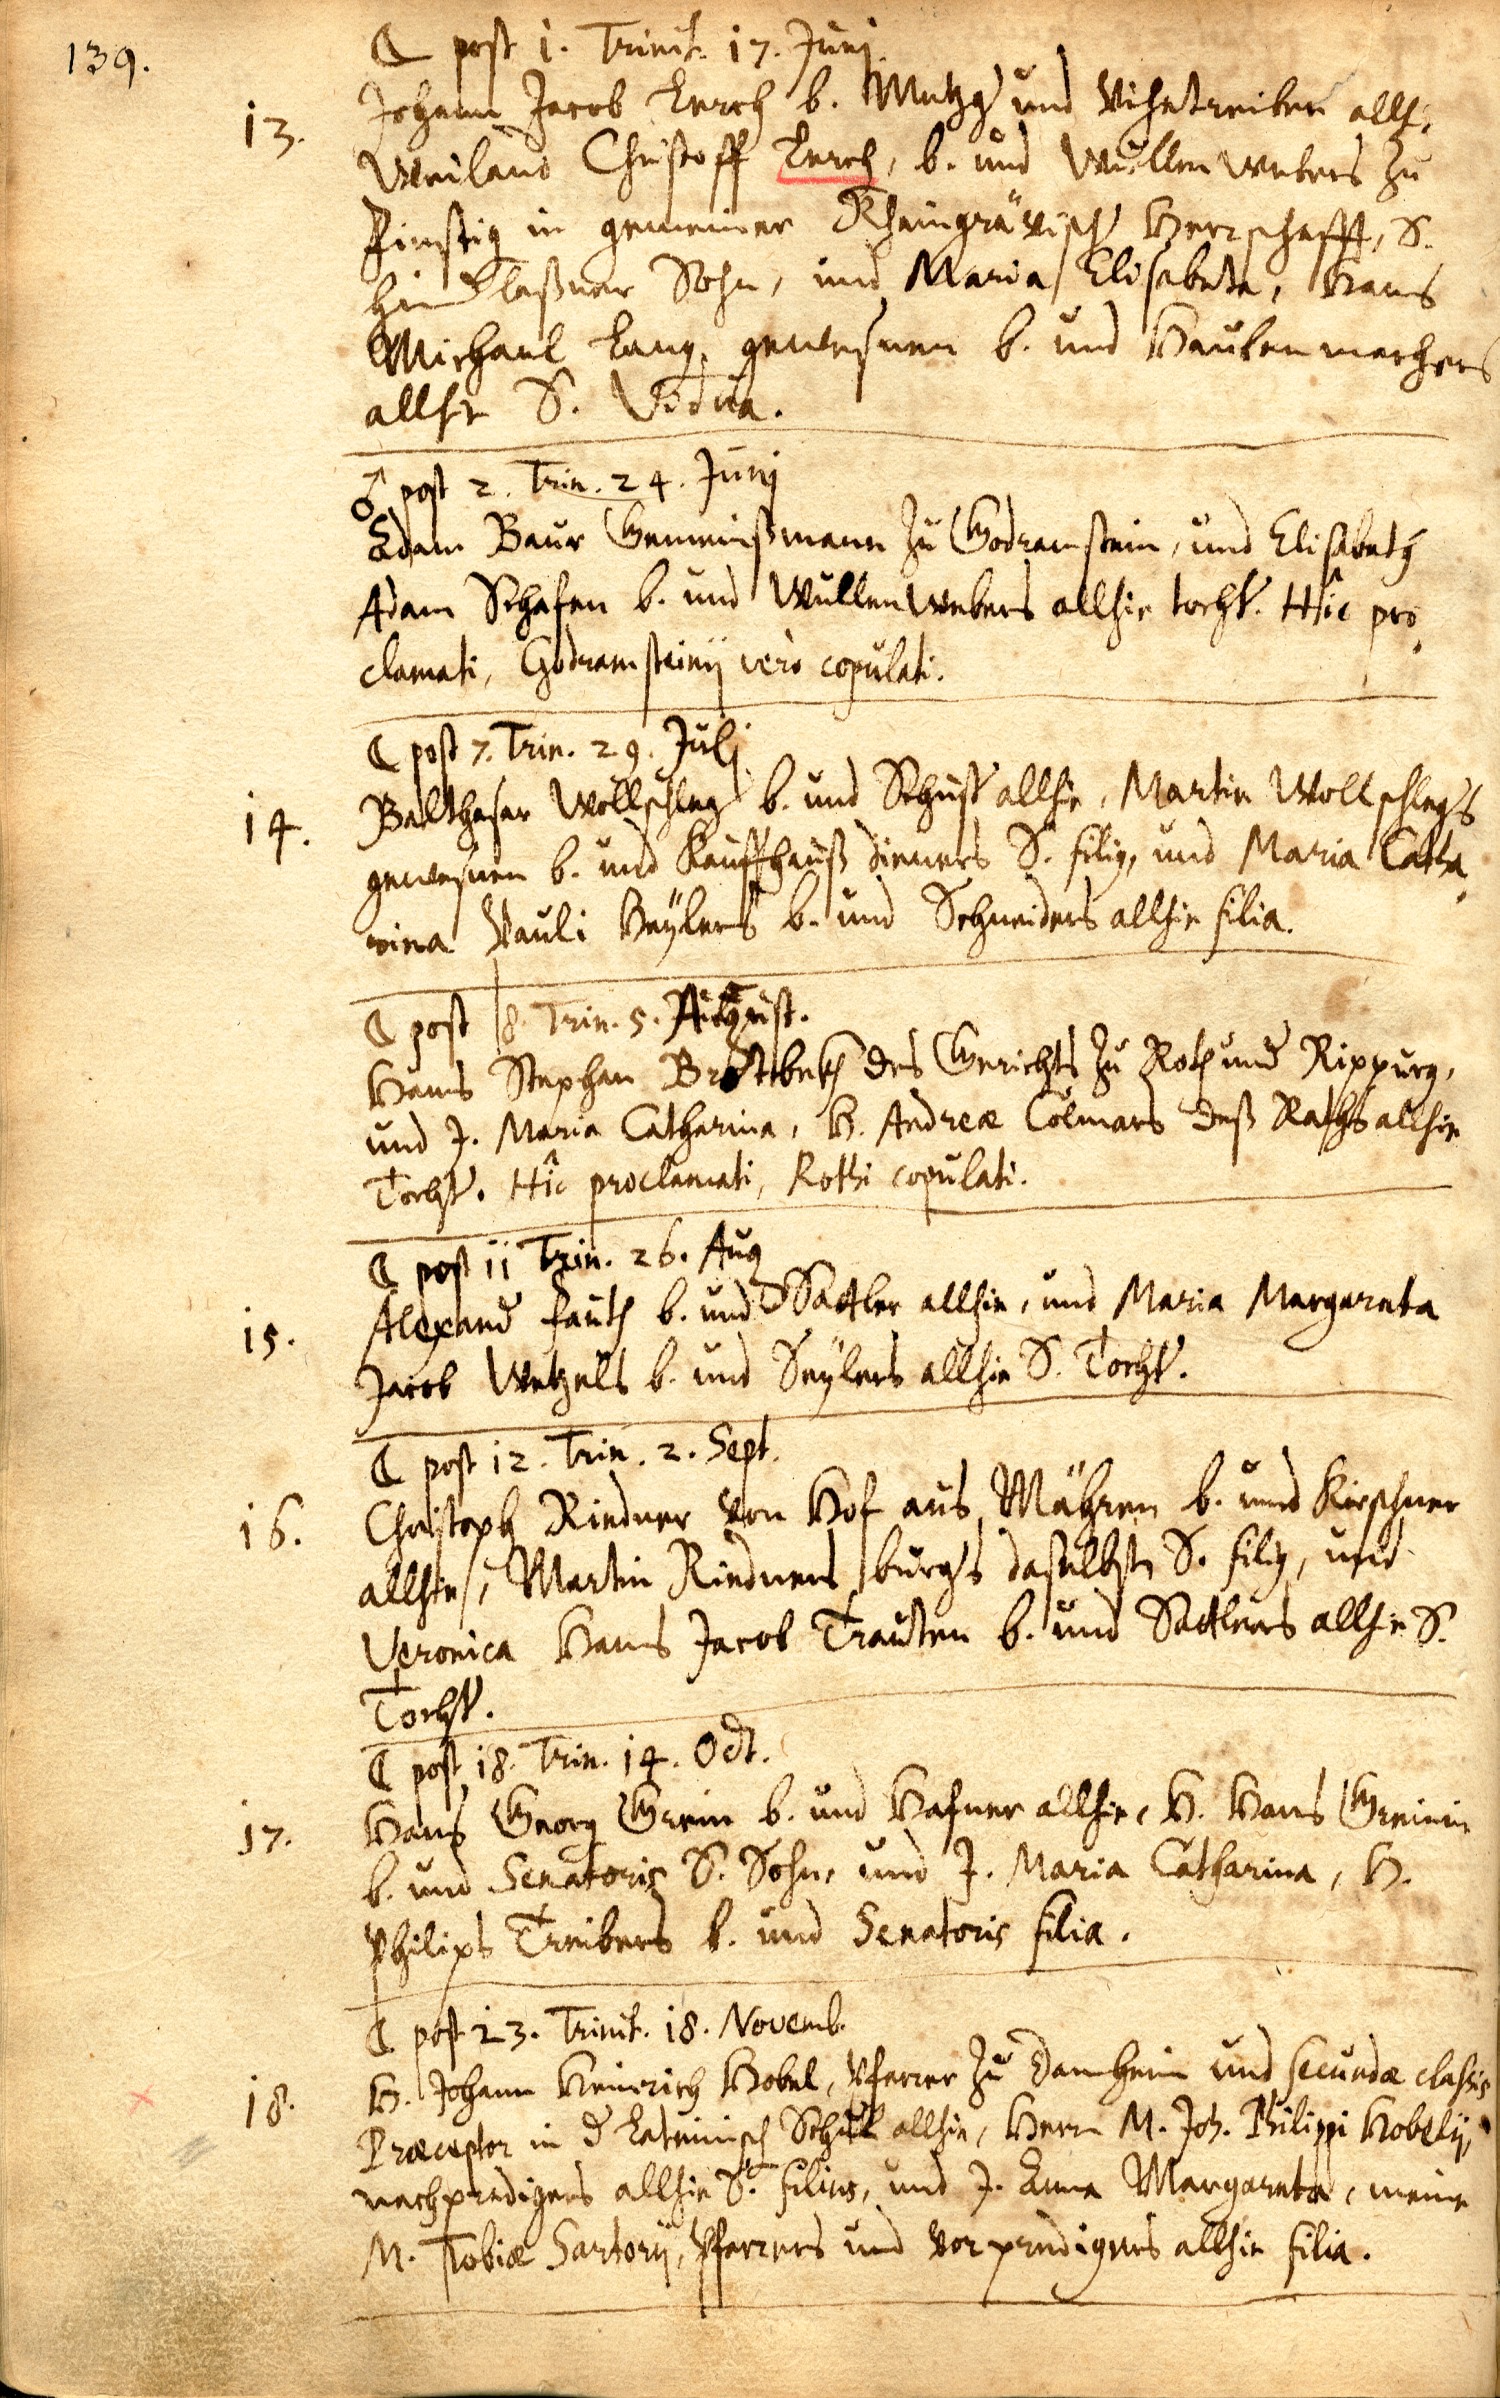 139.
☾ post 1. Trinit. 17. Junij
13. Johann Jacob Lerch b. Metzger und Vihetreiber allh.
Weiland Christoff Lerch, b. und Wüllenwebers zu
Finstig in gemeiner Rheingräwisch Herrschafft, S.
hindlaßner Sohn, und Maria Elisabeta, Hans
Michael Lang, gewesnen b. und Haubenmachers
allhie S. Vidua.
♂ post 2. Trin. 24. Junij
Adam Baur Gemeinßmann zu Godramstein, und Elisabeth
Adam Schafen b. und Wüllenwebers allhie tochter. Hîc pro
clamati, Godramsteinij verò copulati.
☾ post 7. Trin. 29. Julj
14. Balthasar Wollschleger b. und Schuster allhie, Martin Wollschlegers
gewesnen b. und Kauffhauß dieners S. filius, und Maria Catha
rina Pauli Heylers b. und Schneiders allhie filia.
☾ post 8. Trin. 5. August.
Hans Stephan Brettbeck des Gerichts zu Roth und Rippurg,
und J. Maria Catharina, H. Andreæ Colmars deß Raths allhie
Tochter. Hîc proclamati, Rothi copulati.
☾ post 11 Trin. 26. Aug
15. Alexander Fauth b. und Sattler allhie, und Maria Margareta
Jacob Wetzels b. und Seylers allhie S. Tochter.
☾ post 12. Trin. 2. Sept.
16. Christoph Riedner von Hof aus Mähren b. und Kirschner
allhie, Martin Riedners burgers daselbsten S. filius, und
Veronica Hans Jacob Trauten b. und Sattlers allhie S.
Tochter.
☾ post 18. Trin. 14. Oct.
17. Hans Georg Grein b. und Hafner allhie, H. Hans Greinen
b. und Senatoris S. Sohn, und J. Maria Catharina, H.
Philips Treibers b. und Senatoris filia.
☾ post 23. Trinit. 18. Novemb.
18. H. Johann Heinrich Hobel, Pfarrer zu Damheim und secundæ classis
Præceptor in der Lateinisch Schul allhie, Herrn M. Joh. Philippi Hobelij,
nachpredigers allhie S. filius, und J. Anna Margareta, meine
M. Tobiæ Sartorij, Pfarrers und Vorpredigers allhie filia.